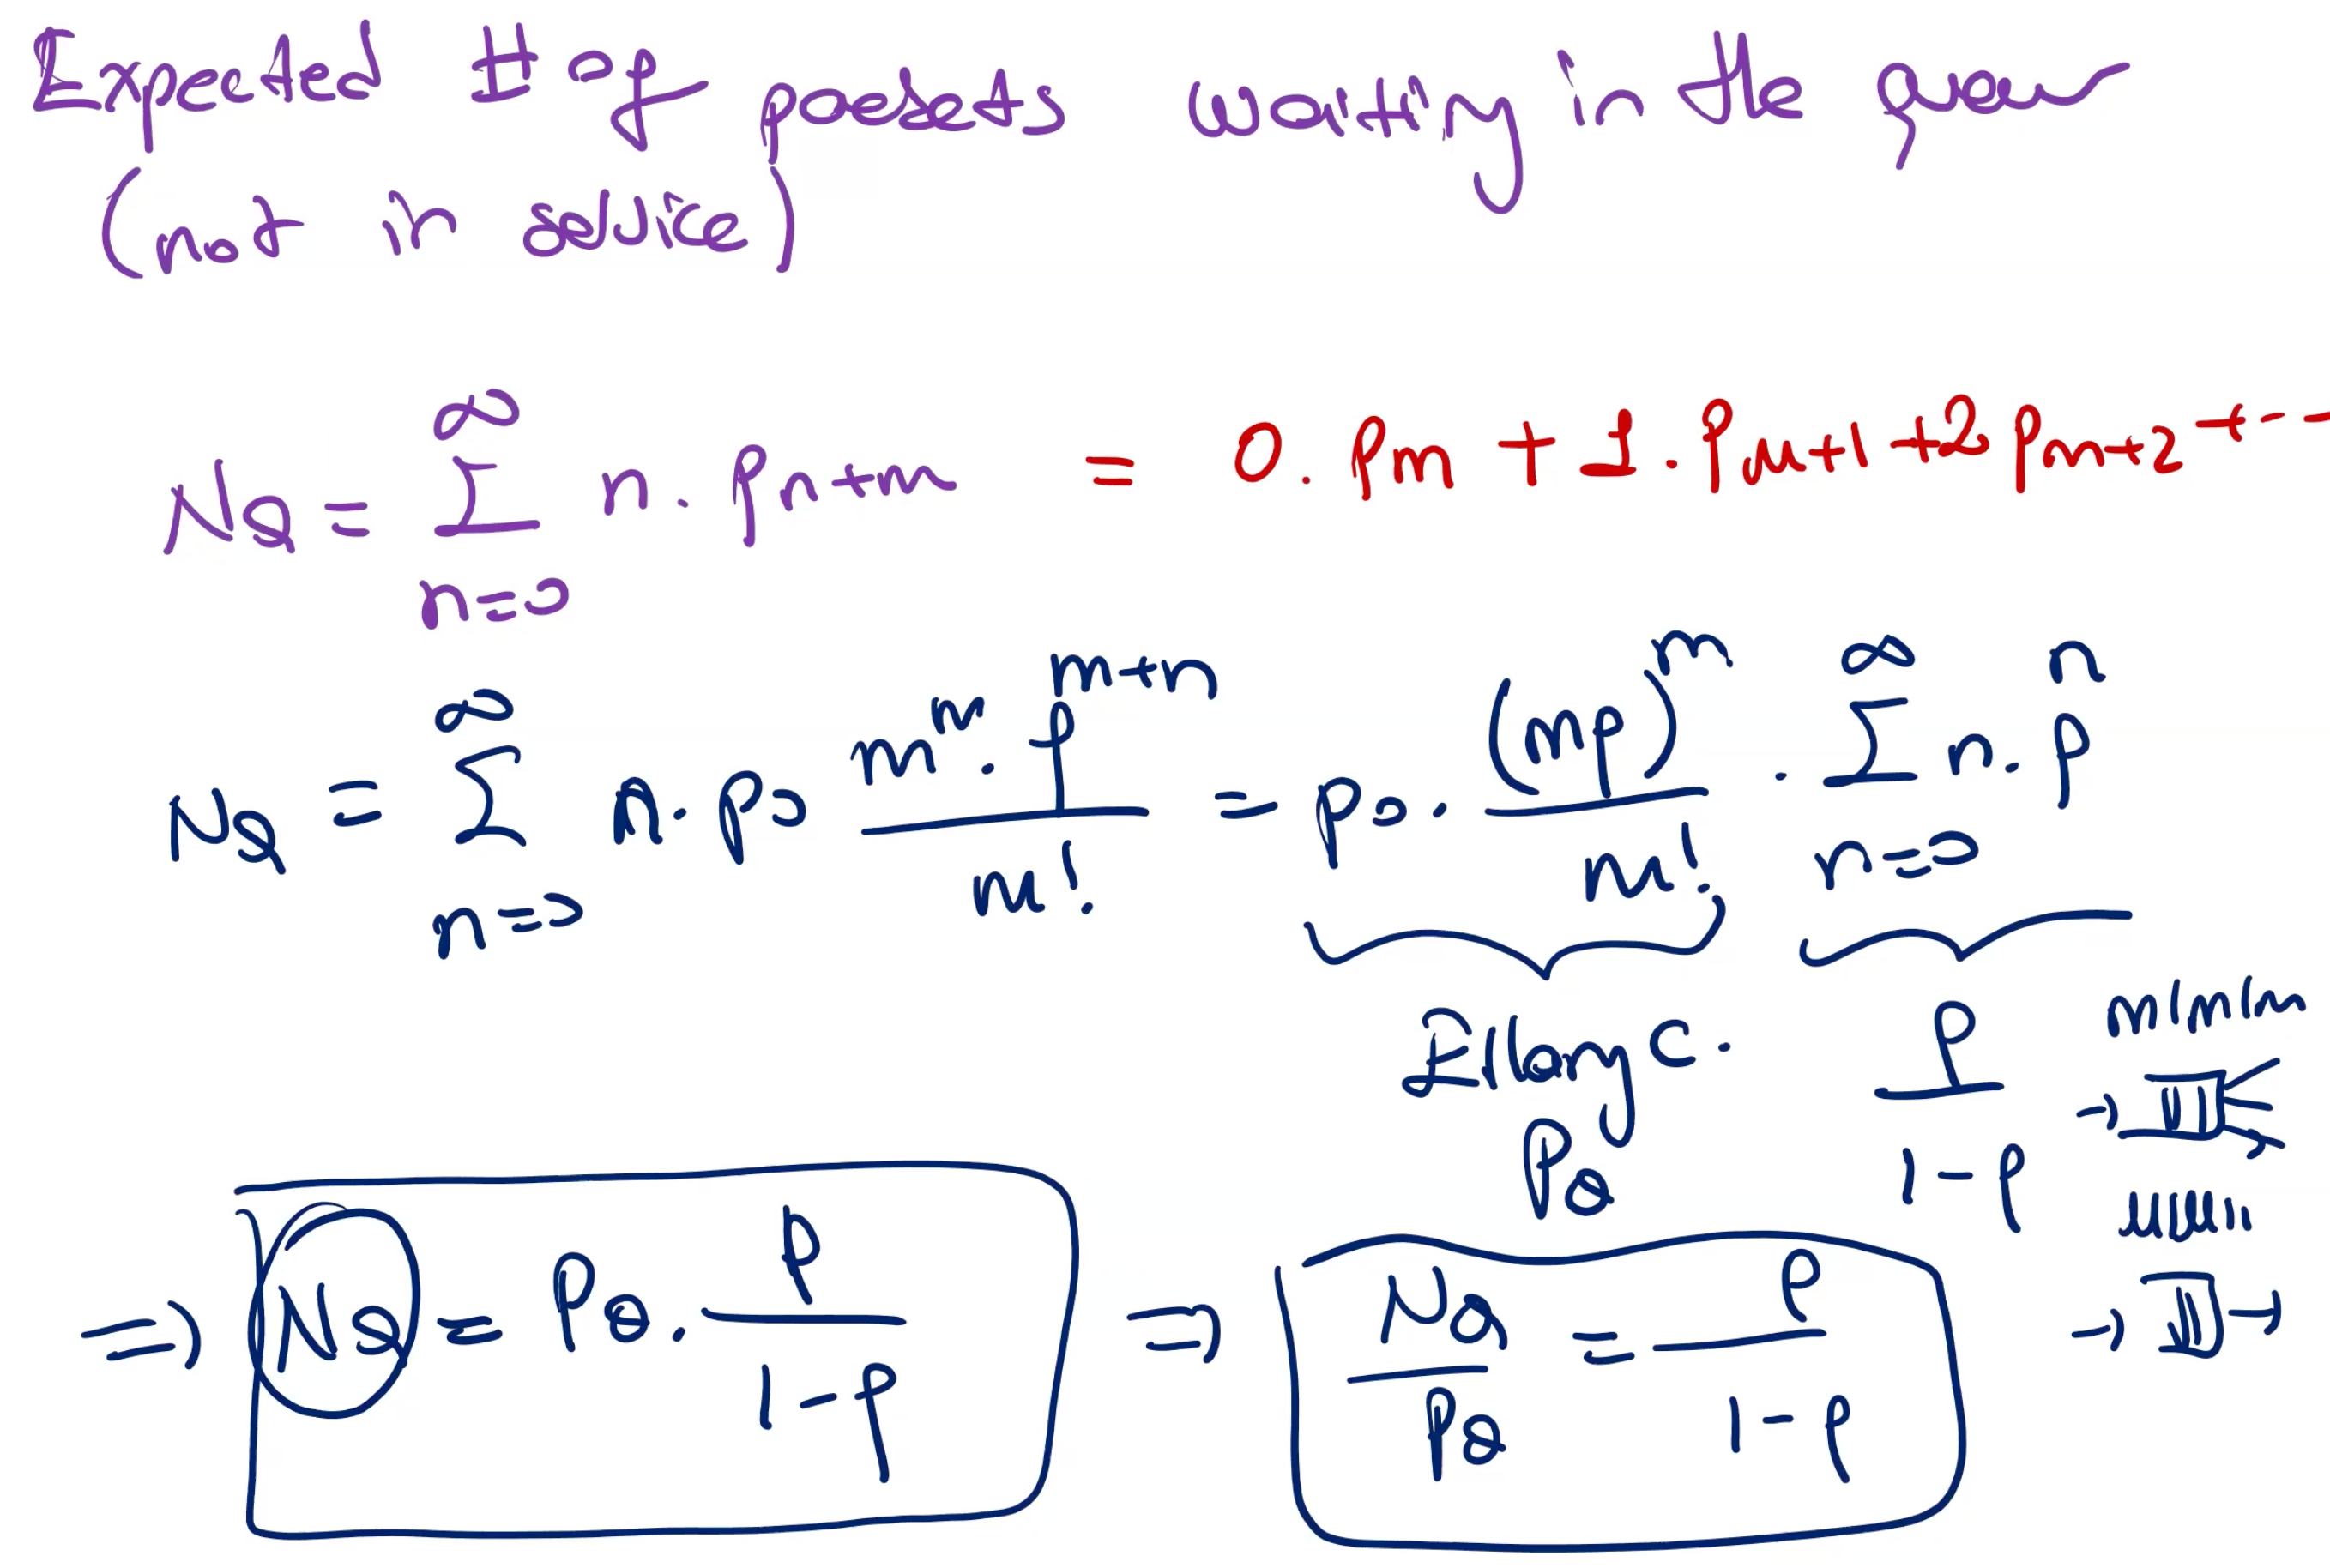 Expected # of packets waiting in the queue
(not in service)
N_Q = Σ_{n=0}^{∞} n · p_{n+m} = 0 · p_m + 1 · p_{m+1} + 2 p_{m+2} + ---
N_Q = Σ_{n=0}^{∞} n · p_0 (m^m · ρ^{m+n}) / m! = p_0 · (mρ)^m / m! · Σ_{n=0}^{∞} n · ρ^n
Erlang C. P_Q
ρ / (1-ρ)
M/M/m
M/M/1
⇒ N_Q = P_Q · ρ / (1-ρ) ⇒ N_Q / P_Q = ρ / (1-ρ)